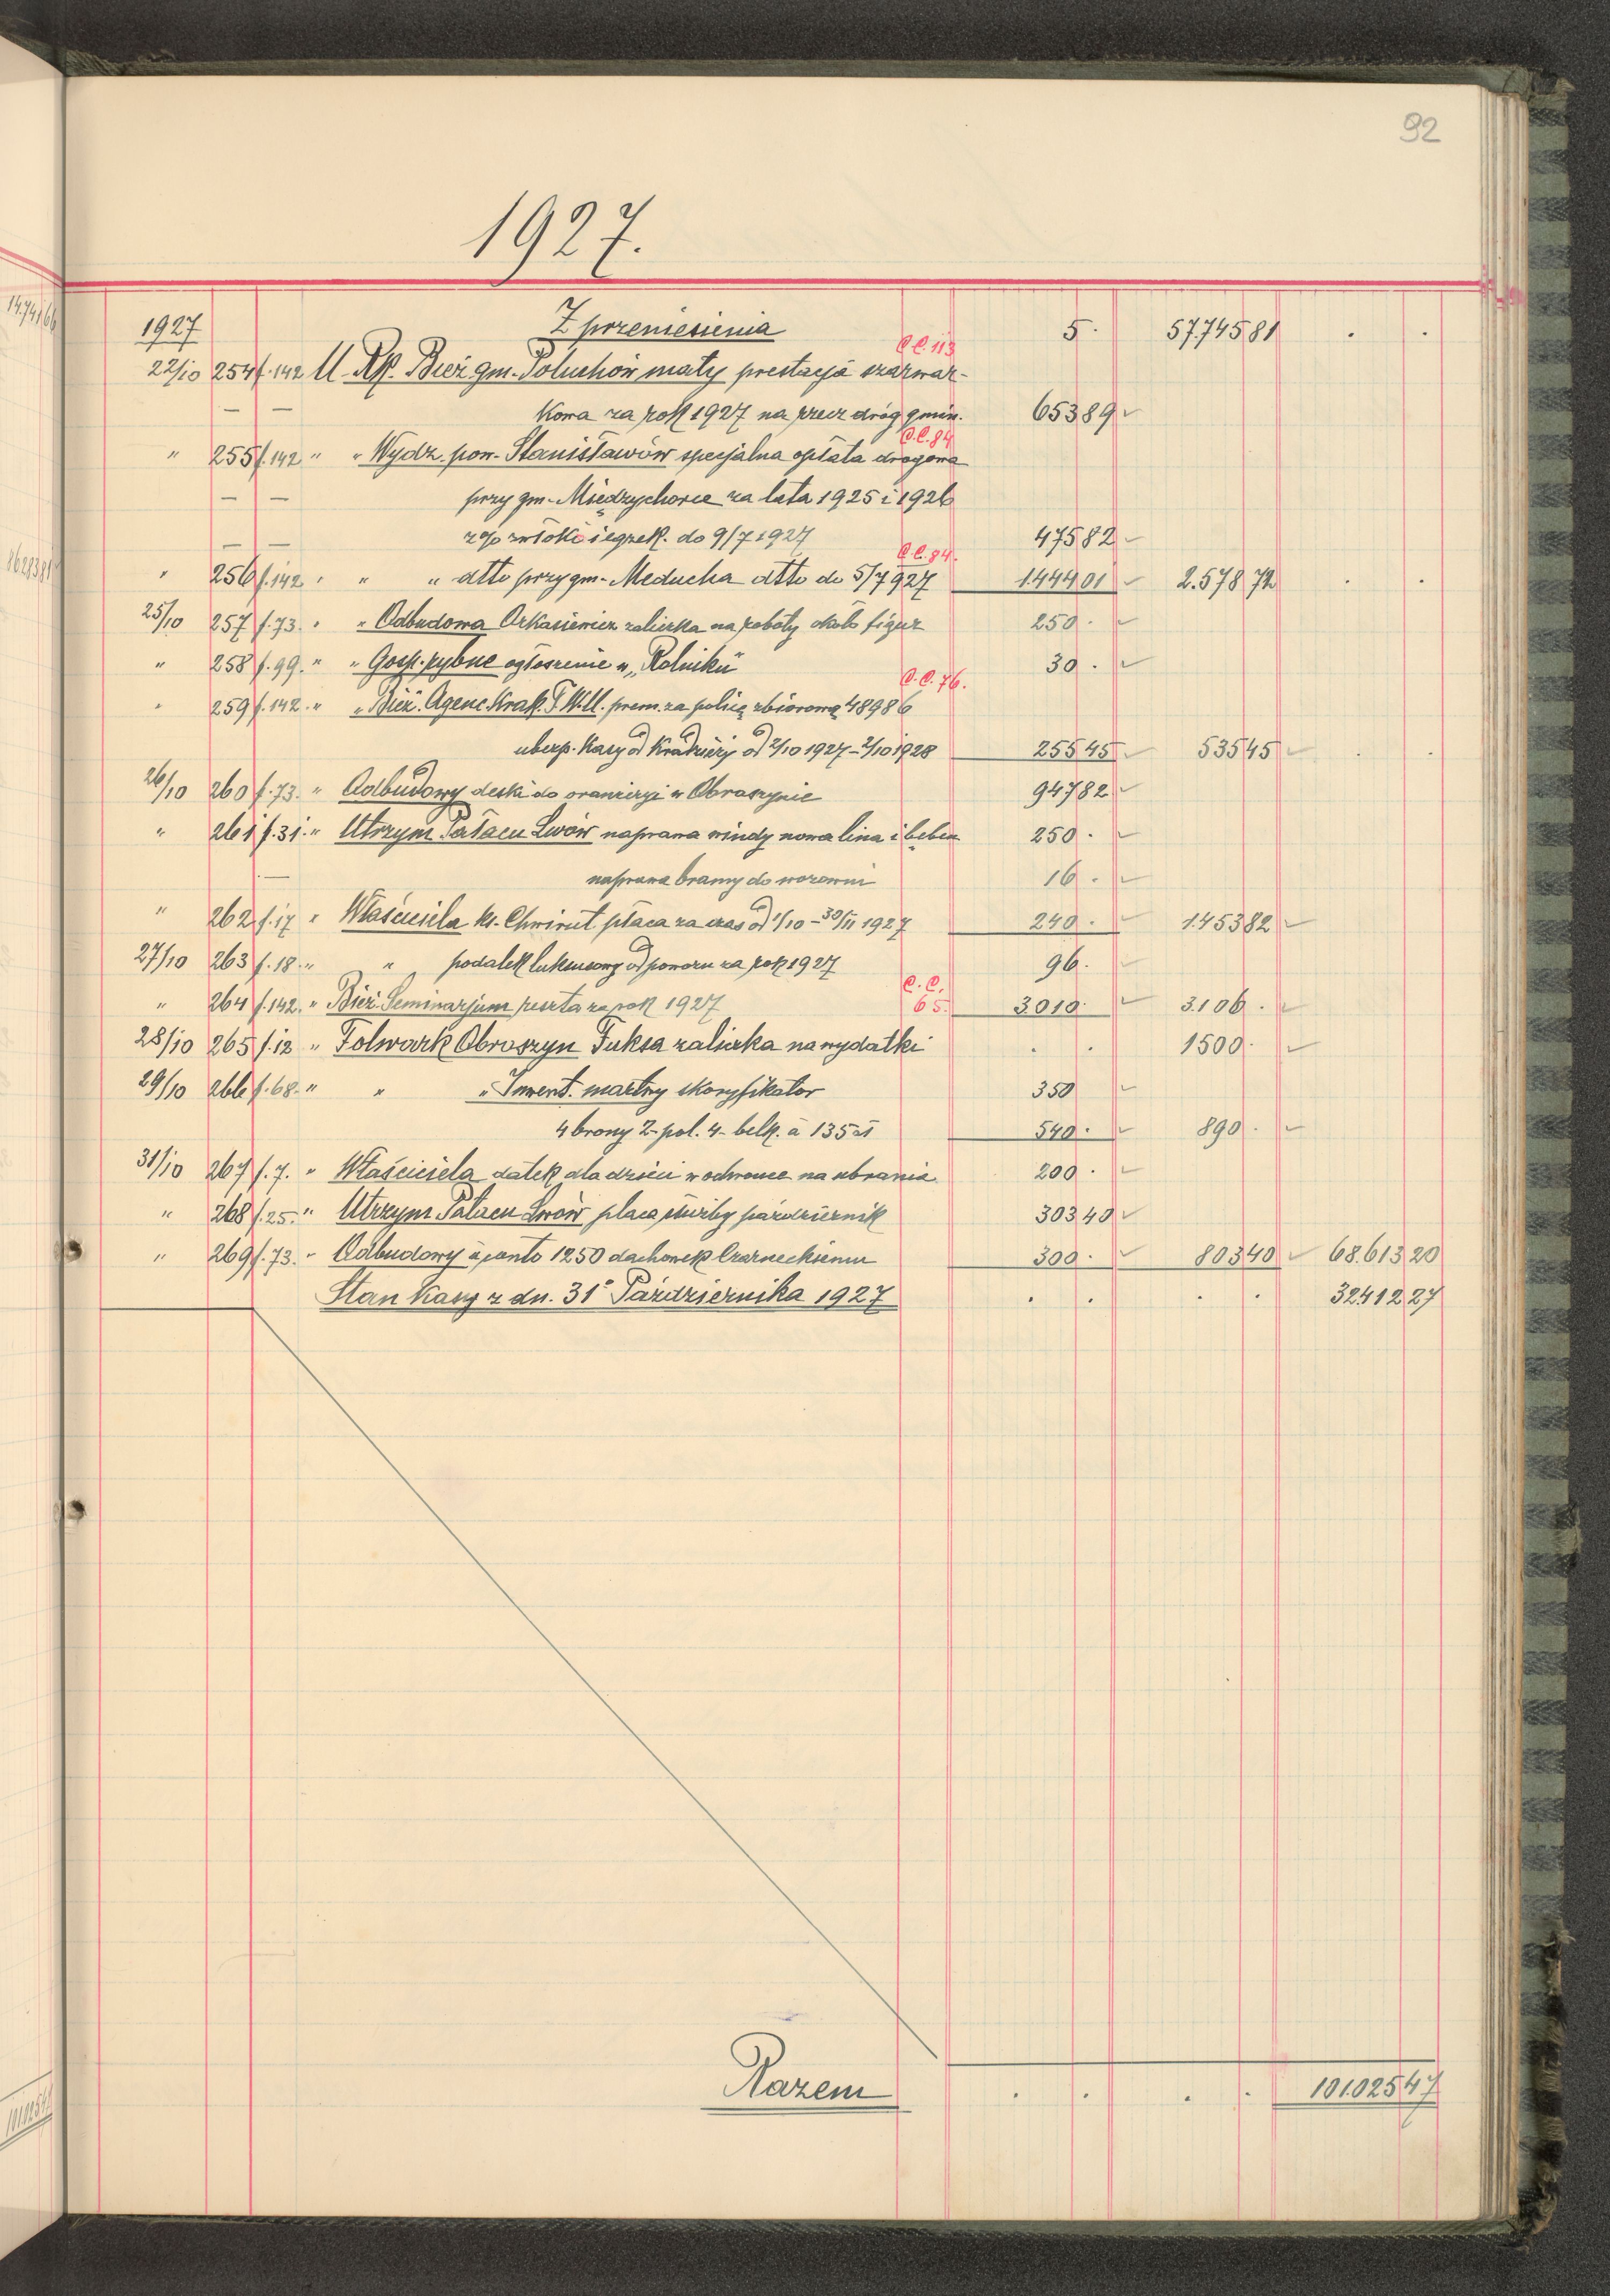 92
1927.
1927 Z przeniesienia 5 . 57.745 81 . .
C.C. 113
22/10 254 f. 142 U. Rp. Bież gm. Połuchów mały prestacja szarwar-
— — kowa za rok 1927 na rzecz dróg gmin. 653 89
C.C. 84
" 255 f. 142 " " Wydz. pow. Stanisławów specjalna opłata drogowa
— — przy gm. Międzychorce za lata 1925 i 1926
— — z % zwłoki i egzek. do 9/7 1927 475 82
C.C. 84.
" 256 f. 142 " " " dtto przy gm. Meducha dtto do 5/7 927 1.444 01 2.578 72 . .
25/10 257 f. 73. " " Odbudowa Arkasiewicz zaliczka na roboty około figur 250 .
" 258 f. 99. " " Gosp. rybne ogłoszenie w „Rolniku" 30 .
C.C. 76.
" 259 f. 142. " " Bież. Agenc. Krak. T. W. U. prem. za policę zbiorową 48986
ubezp. Kasy od Kradzieży od 2/10 1927 - 2/10 1928 255 45 535 45 . .
26/10 260 f. 73. " Odbudowy deski do oranżeryi w Obroszynie 947 82
" 261 f. 31. " Utrzym. Pałacu Lwów naprawa windy nowa lina i bęben 250 .
— naprawa bramy do wozowni 16 .
" 262 f. 17 " Właściciela ks. Chwirut płaca za czas od 1/10 - 30/11 1927 240 . 1.453 82
27/10 263 f. 18. " " podatek luksusowy od powozu za rok 1927 96 .
C.C.
" 264 f. 142. " Bież. Seminarjum reszta za rok 1927 65. 3.010 . 3.106 .
28/10 265 f. 12 " Folwark Obroszyn Fuksa zaliczka na wydatki . . 1500 .
29/10 266 f. 68. " " " Inwent. martwy skaryfikator 350
4 brony 2-pol. 4-belk. à 135 zł 540 . 890 .
31/10 267 f. 7. " Właściciela datek dla dzieci w ochronce na ubrania 200 .
" 268 f. 25. " Utrzym. Pałacu Lwów płaca służby październik 303 40
" 269 f. 73. " Odbudowy à conto 1250 dachówek Czarneckiemu 300 . 803 40 68.613 20
Stan Kasy z dn. 31 Października 1927 . . . . 32.412 27
Razem . . . . 101.025 47